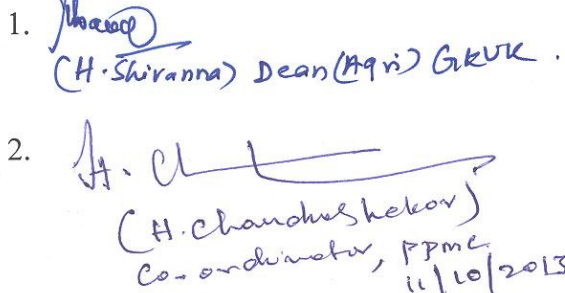 1.
(H. Shivanna) Dean (Agri) GKVK.
2. H. Ch
(H. Chandrashekar)
Co-ordinator, PPMC
11/10/2013